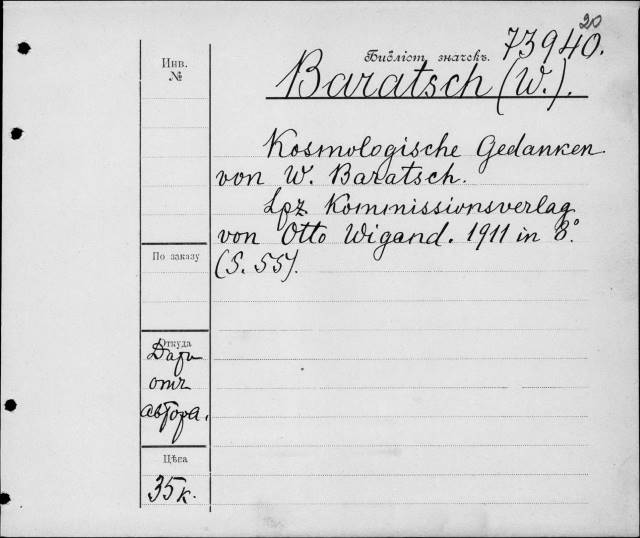 20
73940.
Инв.
№
Библіот. значекъ.
Baratsch (W.).
Kosmologische Gedanken
von W. Baratsch.
Lpz. Kommissionsverlag
von Otto Wigand. 1911 in 8°.
(S. 55).
По заказу
Откуда
Даръ
отъ
автора.
Цѣна
35 к.